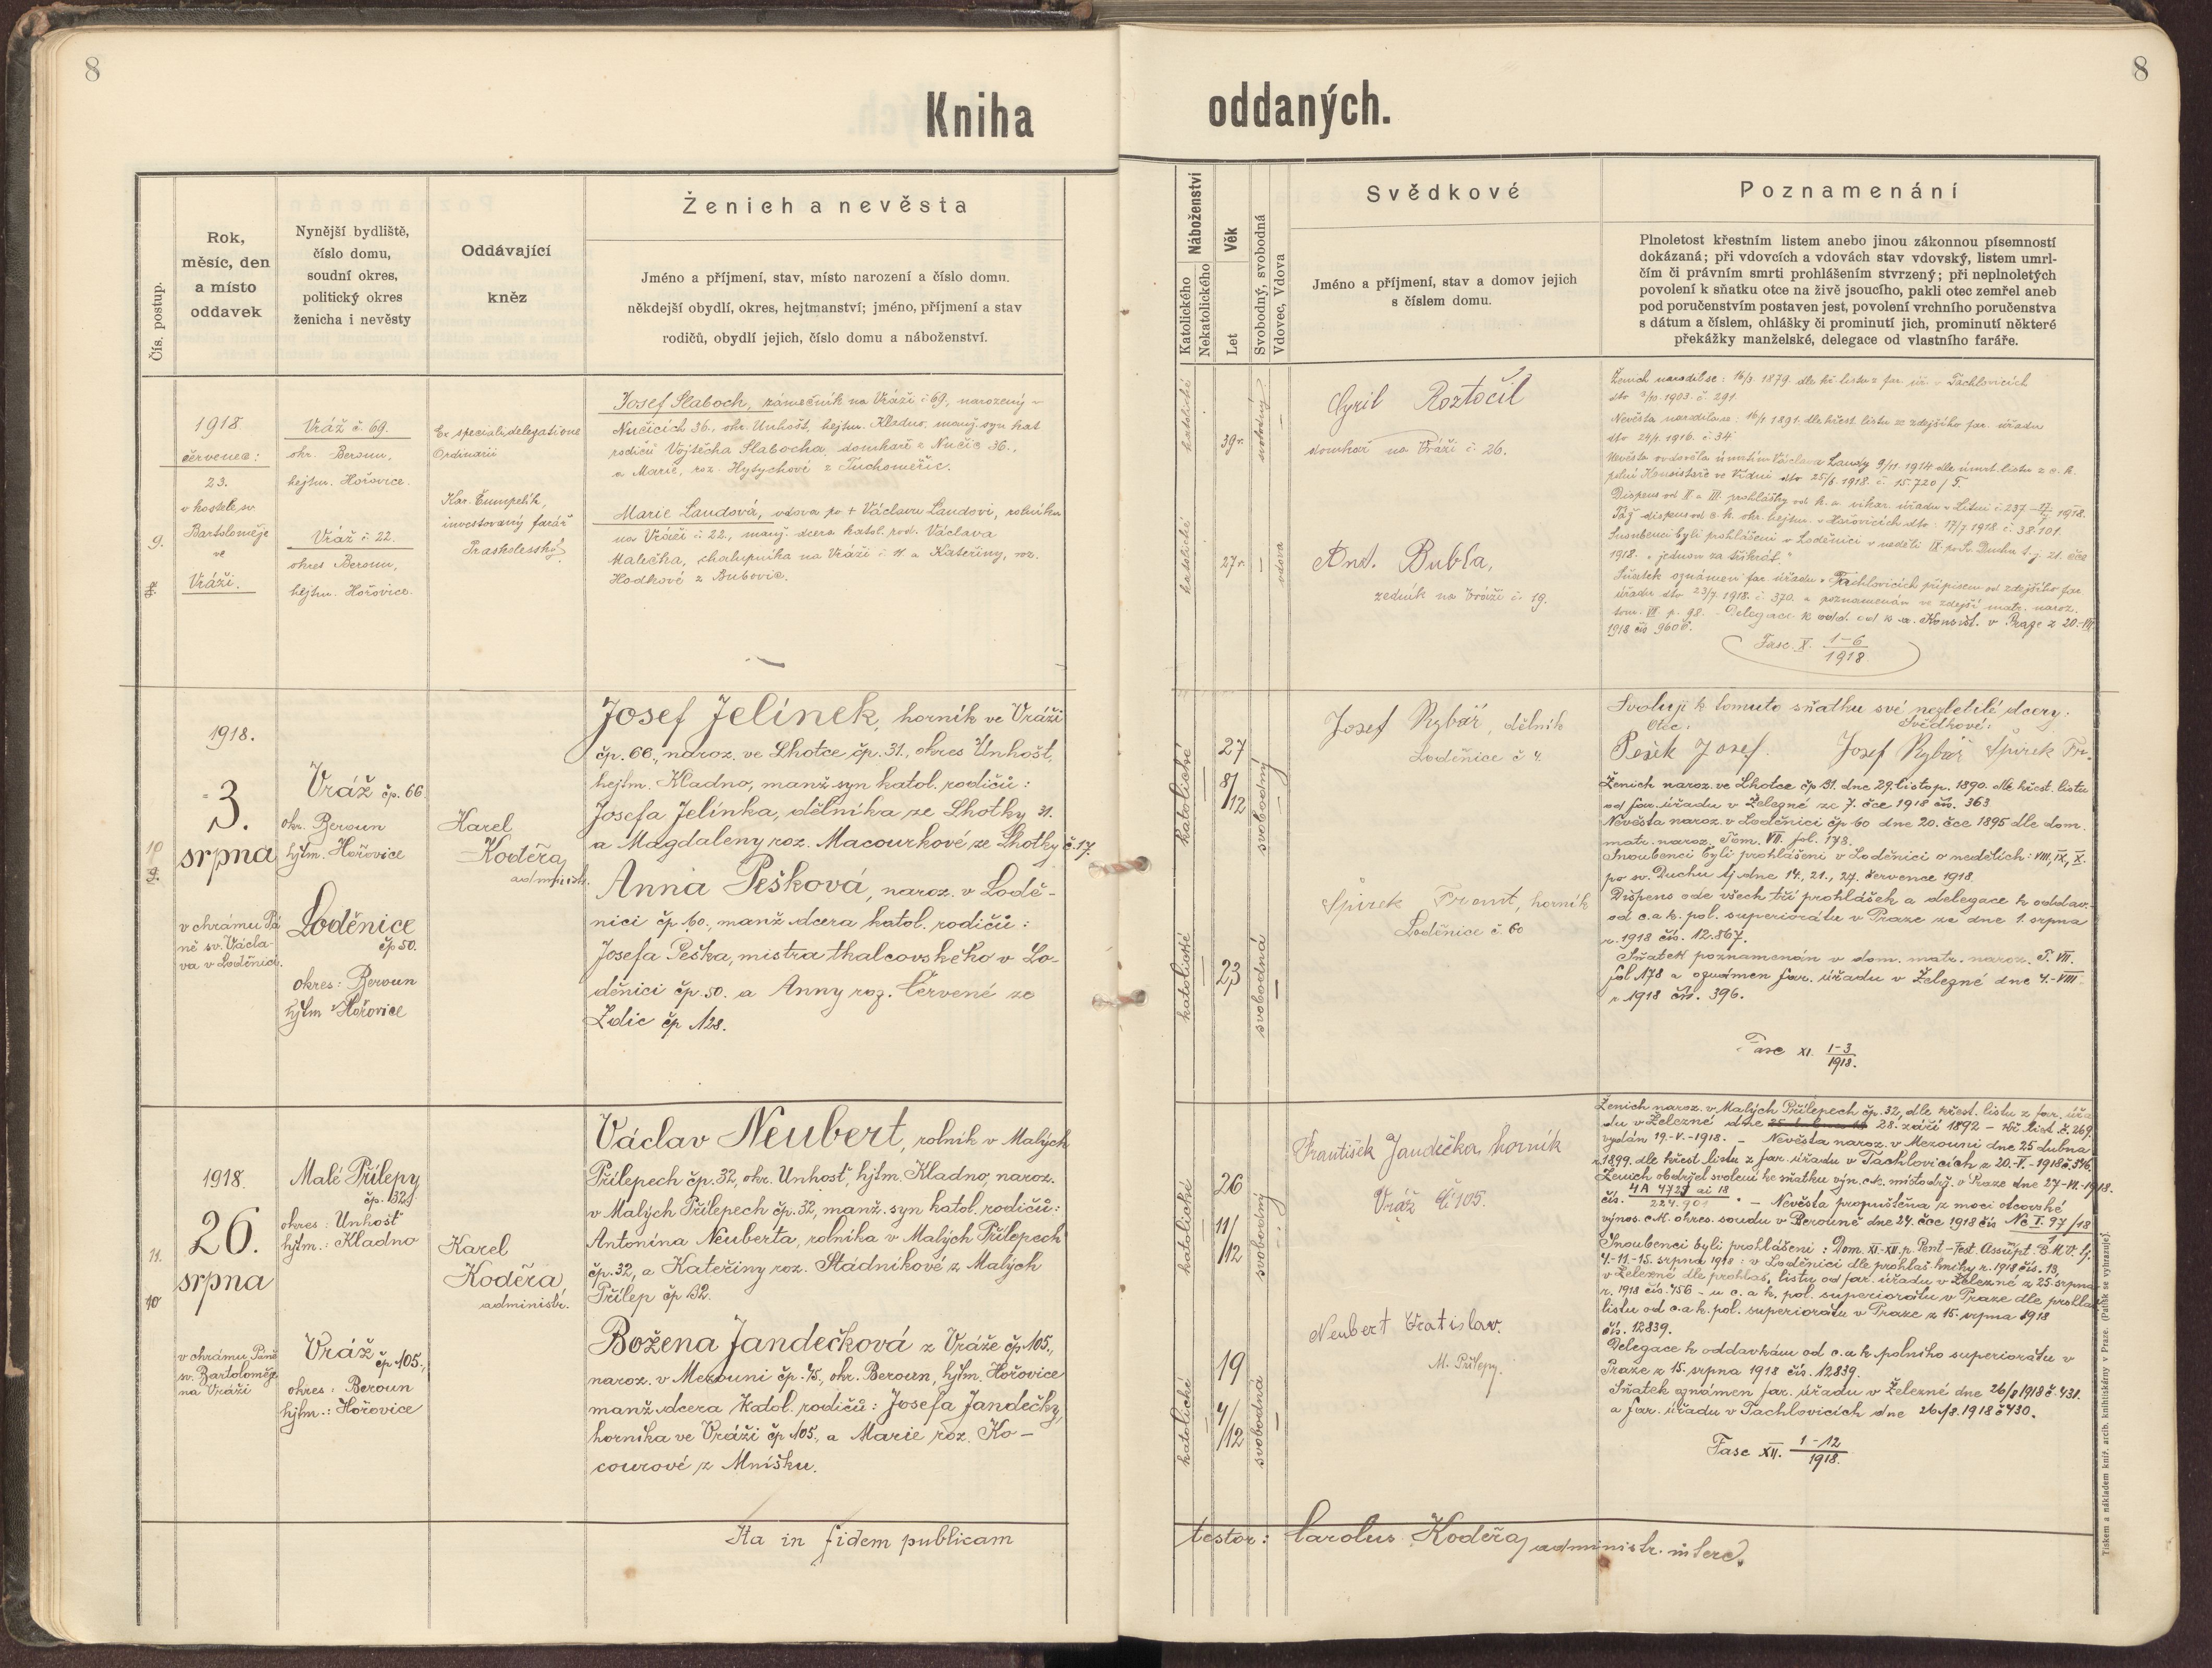 8
8
Kniha
oddaných.
Čís. postup.
Rok,
měsíc, den
a místo
oddavek
Nynější bydliště,
číslo domu,
soudní okres,
politický okres
ženicha i nevěsty
Oddávající
kněz
Ženich a nevěsta
Jméno a příjmení, stav, místo narození a číslo domu.
někdejší obydlí, okres, hejtmanství; jméno, příjmení a stav
rodičů, obydlí jejich, číslo domu a náboženství.
Náboženství
Katolického
Nekatolického
Věk
Let
Svobodný, svobodná
Vdovec, Vdova
Svědkové
Jméno a příjmení, stav a domov jejich
s číslem domu.
Poznamenání
Plnoletost křestním listem anebo jinou zákonnou písemností
dokázaná; při vdovcích a vdovách stav vdovský, listem umrl-
čím či právním smrti prohlášením stvrzený; při neplnoletých
povolení k sňatku otce na živě jsoucího, pakli otec zemřel aneb
pod poručenstvím postaven jest, povolení vrchního poručenstva
s dátum a číslem, ohlášky či prominutí jich, prominutí některé
překážky manželské, delegace od vlastního faráře.
9.
1918
červenec:
23.
v kostele sv.
Bartoloměje
ve
Vráži.
Vráž č. 69.
okr. Beroun,
hejtm. Hořovice.
Vráž č. 22.
okres Beroun,
hejtm. Hořovice.
Ex speciali delegatione
Ordinarii
Kar. Čumpelík,
investovaný farář
Praskolesský
Josef Slaboch, zámečník na Vráži č 69, narozený v
Nučicích 36., okr. Unhošt, hejtm. Kladno, manž. syn kat.
rodičů Vojtěcha Slabocha, domkaře z Nučic 36.,
a Marie, roz. Hytychové z Tuchoměřic.
Marie Laudová, vdova po + Václavu Laudovi, rolníku
na Vráži č 22., manž. dcera katol. rod. Václava
Malečka, chalupníka na Vráži č. 11. a Kateřiny, roz.
Hodkové z Bubovic.
katolické
katolické
39 r.
27 r.
svobodný
vdova
Cyril Roztočil
domkář na Vráži č. 26.
Ant. Bubla,
zedník na Vráži č. 19.
Ženich narodil se: 16/3. 1879. dle kř. listu z far. úř. v Tachlovicích
dto 2/10. 1903. č. 291.
Nevěsta narodila se: 16/1 1891. dle křest. listu ze zdejšího far. úřadu
dto 24/1. 1916. č. 34
Nevěsta ovdověla úmrtím Václava Laudy 9/11. 1914 dle úmrt. listu z c. k.
polní Konsistoře ve Vídni dto 25/6. 1918. č. 15.720/F.
Dispens od II. a III. prohlášky od k. a. vikar. úřadu v Litni č. 237 17/7 1918.
Též dispens od c. k. okr. hejtm. v Hořovicích dto: 17/7 1918. č. 38.101.
Snoubenci byli prohlášeni v Loděnici v neděli IX. po sv. Duchu t. j. 21. čce
1918. „jednou za třikrát."
Sňatek oznámen far. úřadu v Tachlovicích přípisem od zdejšího far.
úřadu dto 23/7. 1918. č. 370. a poznamenán ve zdejší matr. naroz.
tom. VI. p. 98. Delegace k odd. od k. a. Konsist. v Praze z 20.-VII.
1918 čís 9606.
Fasc. X. 1-6
1918.
10
1918.
3.
srpna
v chrámu Pá
ně sv. Václa-
va v Loděnici.
Vráž čp. 66
okr. Beroun
hjtm. Hořovice
Loděnice
čp 50.
okres: Beroun
hjtm Hořovice
Karel
Koděra
administr.
Josef Jelínek, horník ve Vráži
čp. 66., naroz. ve Lhotce čp. 31., okres Unhošt,
hejtm. Kladno, manž. syn katol. rodičů:
Josefa Jelínka, dělníka ze Lhotky 31.
a Magdaleny roz. Macourkové ze Lhotky č 17.
Anna Pešková, naroz. v Lodě-
nici čp. 60., manž dcera katol. rodičů:
Josefa Peška, mistra tkalcovského v Lo-
děnici čp. 50. a Anny roz. Červené ze
Zdic čp 128.
katolické
katolické
27
8/
12
23
svobodný
svobodná
Josef Rybář, dělník
Loděnice č 4.
Špirek Frant, horník
Loděnice č. 60
Svoluji k tomuto sňatku své nezletilé dcery.
Otec: Svědkové:
Pešek Josef. Josef Rybář Špirek Fr.
Ženich naroz. ve Lhotce čp 31. dne 29. listop. 1890. dle křest. listu
od far. úřadu v Železné ze 7. čce 1918 čís. 363
Nevěsta naroz. v Loděnici čp 60 dne 20. čce 1895 dle dom.
matr. naroz. Tom. VII. fol. 178.
Snoubenci byli prohlášeni v Loděnici o nedělích: VIII, IX, X.
po sv. Duchu tj. dne 14., 21., 27. července 1918.
Dispens ode všech tří prohlášek a delegace k oddav.
od c. a k. pol. superiorátu v Praze ze dne 1. srpna
r. 1918 čís. 12.867.
Sňatek poznamenán v dom. matr. naroz. T. VII.
fol. 178 a oznámen far. úřadu v Železné dne 4.-VIII.
r. 1918 čís. 396.
Fasc XI. 1-3
1918.
11.
10
1918
26.
srpna
v chrámu Páně
sv. Bartoloměje
na Vráži
Malé Přílepy
čp. 32.
okres: Unhošt
hjtm.: Kladno
Vráž čp 105.,
okres: Beroun
hjtm.: Hořovice
Karel
Koděra,
administr.
Václav Neubert, rolník v Malých
Přílepech čp. 32, okr. Unhošt, hjtm. Kladno, naroz.
v Malých Přílepech čp. 32, manž. syn katol. rodičů:
Antonína Neuberta, rolníka v Malých Přílepech
čp. 32, a Kateřiny roz. Stádníkové z Malých
Přílep čp 32.
Božena Jandečková z Vráže čp 105.,
naroz. v Mezouni čp. 75., okr. Beroun, hjtm. Hořovice
manž dcera katol. rodičů: Josefa Jandečky,
horníka ve Vráži čp 105., a Marie roz. Ko-
courové z Mníšku.
katolické
katolické
26
11/
12
19
4/
12
svobodný
svobodná
František Jandečka, horník
Vráž č 105.
Neubert Vratislav.
M. Přílepy.
Ženich naroz. v Malých Přílepech čp. 32, dle křest. listu z far. úřa
du v Železné dne 28. září 1892 – kř. list. č. 269.
vydán 19.-V.-1918. – Nevěsta naroz. v Mezouni dne 25 dubna
r. 1899. dle křest listu z far. úřadu v Tachlovicích z 20.-V.-1918 č. 316.
Ženich obdržel svolení ke sňatku výn. c. k. místodrž. v Praze dne 27-VI.-1918.
čís. 4A 4729 ai 18
224.901 . – Nevěsta propuštěna z moci otcovské
výnos. c. k. okres. soudu v Berouně dne 24. čce 1918 čís Nc I. 97/18
1
Snoubenci byli prohlášeni: Dom. XI.-XII. p. Pent – Fest. Assumpt. B. M. V. tj.
4.-11.-15. srpna 1918: v Loděnici dle prohlaš. knihy r. 1918 čís. 13,
v Železné dle prohlaš. listu od far. úřadu v Železné z 25. srpna
r. 1918 čís. 456 – u c. a k. pol. superiorátu v Praze dle prohlaš
listu od c. a k. pol. superiorátu v Praze z 15. srpna 1918
čís. 12839.
Delegace k oddavkám od c. a k. polního superiorátu v
Praze z 15. srpna 1918 čís. 12839.
Sňatek oznámen far. úřadu v Železné dne 26/8 1918 č. 431.
a far. úřadu v Tachlovicích dne 26./8. 1918 č 430.
Fasc XII. 1.-12
1918.
Ita in fidem publicam
testor: Carolus Koděra, administr. interc.
Tiskem a nákladem kníž. arcib. knihtiskárny v Praze. (Patisk se vyhrazuje).